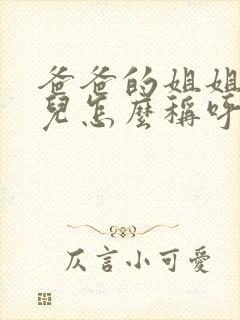 爸爸的姐姐
兒怎麼稱呼
仄言小可愛